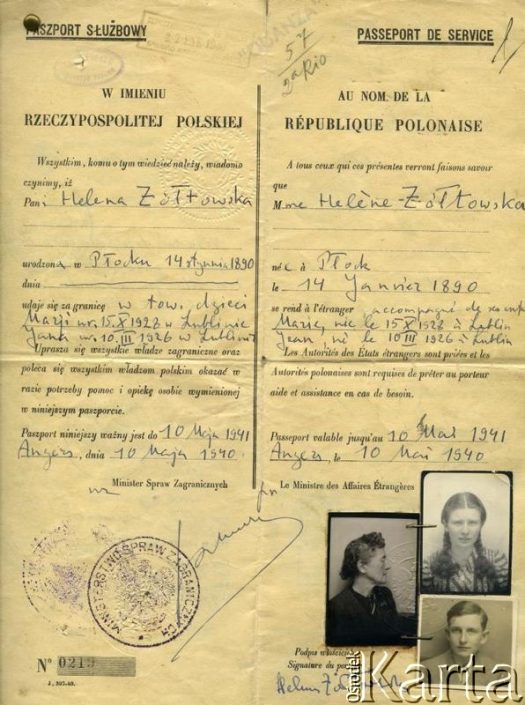 PASZPORT SŁUŻBOWY
W IMIENIU
RZECZYPOSPOLITEJ POLSKIEJ
Wszystkim, komu o tym wiedzieć należy, wiadomo
czynimy, iż
Pani Helena Żółtowska
urodzona w Płocku 14 stycznia 1890
dnia
udaje się za granicę w tow. dzieci
Marji ur. 15.X 1928 w Lublinie
Jana ur. 10.III 1926 w Lublinie
Uprasza się wszystkie władze zagraniczne oraz
poleca się wszystkim władzom polskim okazać w
razie potrzeby pomoc i opiekę osobie wymienionej
w niniejszym paszporcie.
Paszport niniejszy ważny jest do 10 Maja 1941
Angers, dnia 10 Maja 1940.
Minister Spraw Zagranicznych
MINISTERSTWO SPRAW ZAGRANICZNYCH
Nº 0219
PASSEPORT DE SERVICE
57
AU NOM DE LA
RÉPUBLIQUE POLONAISE
A tous ceux qui ces présentes verront faisons savoir
que
Mme Helène Żółtowska
née à Płock
le 14 Janvier 1890
se rend à l'étranger accompagné de ses enf
Marie, née le 15 X 1928 à Lublin
Jean, né le 10 III 1926 à Lublin
Les Autorités des États étrangers sont priées et les
Autorités polonaises sont requises de prêter au porteur
aide et assistance en cas de besoin.
Passeport valable jusqu'au 10 Mai 1941
Angers, le 10 Mai 1940.
Le Ministre des Affaires Étrangères
Podpis
Signature du
Ośrodek
Karta